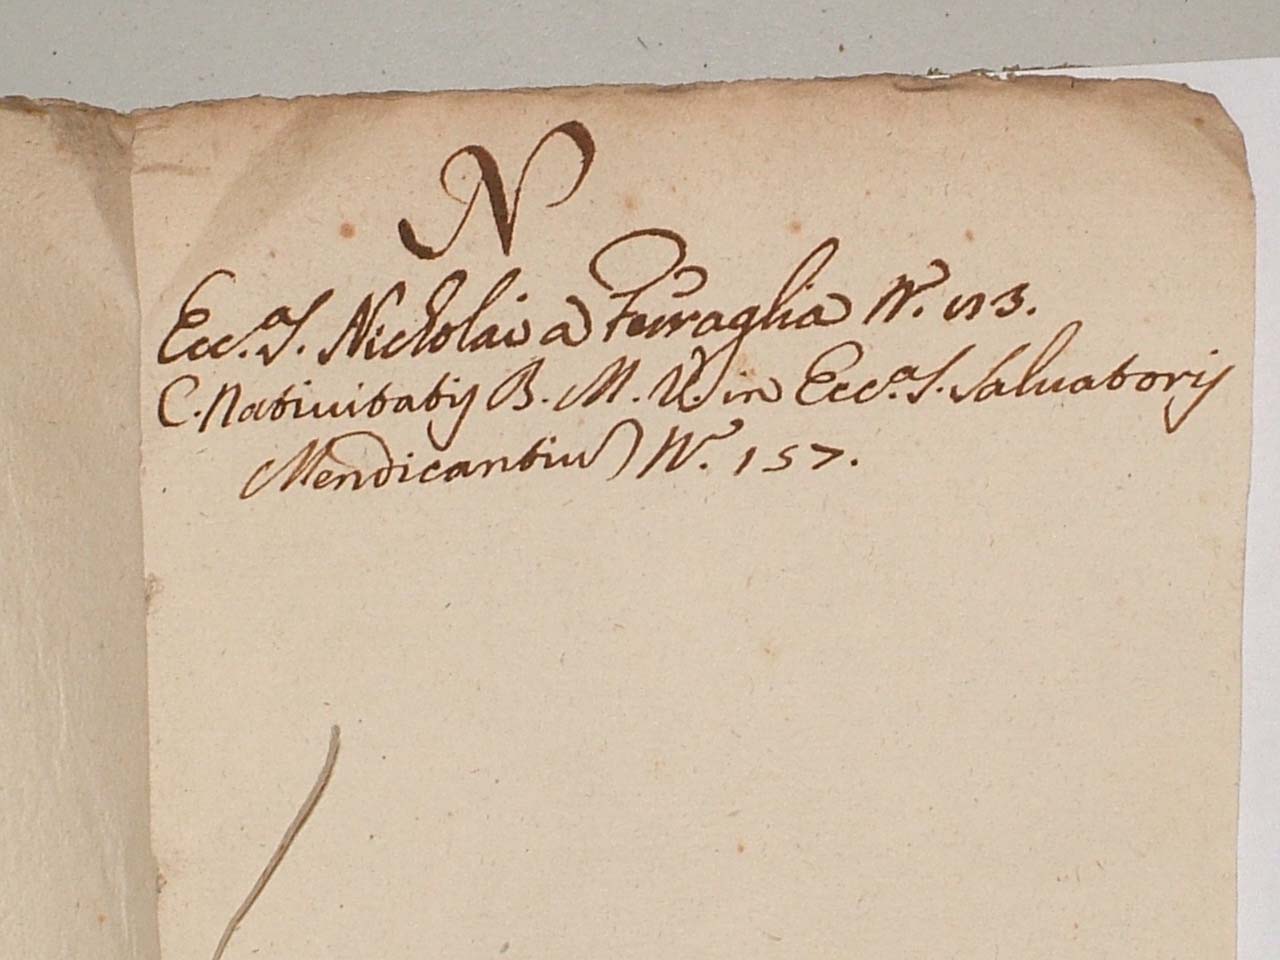 N
Ecc.a S. Nicholai a Ferraglia N.o 113.
C. Nativitatis B. M. V. in Ecc.a S. Salvatoris
Mendicantiu N.o 157.